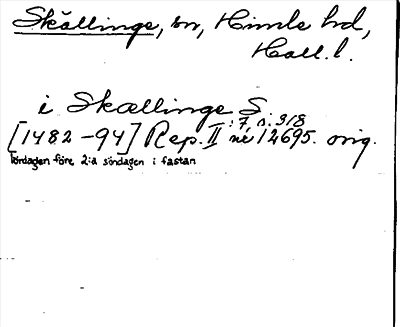 Skällinge, sn, Himle hd,
Hall. l.
i Skællinge S.
: 7, s. 318
[1482-94] Rep. II nr 12695. orig.
lördagen före 2:a söndagen i fastan